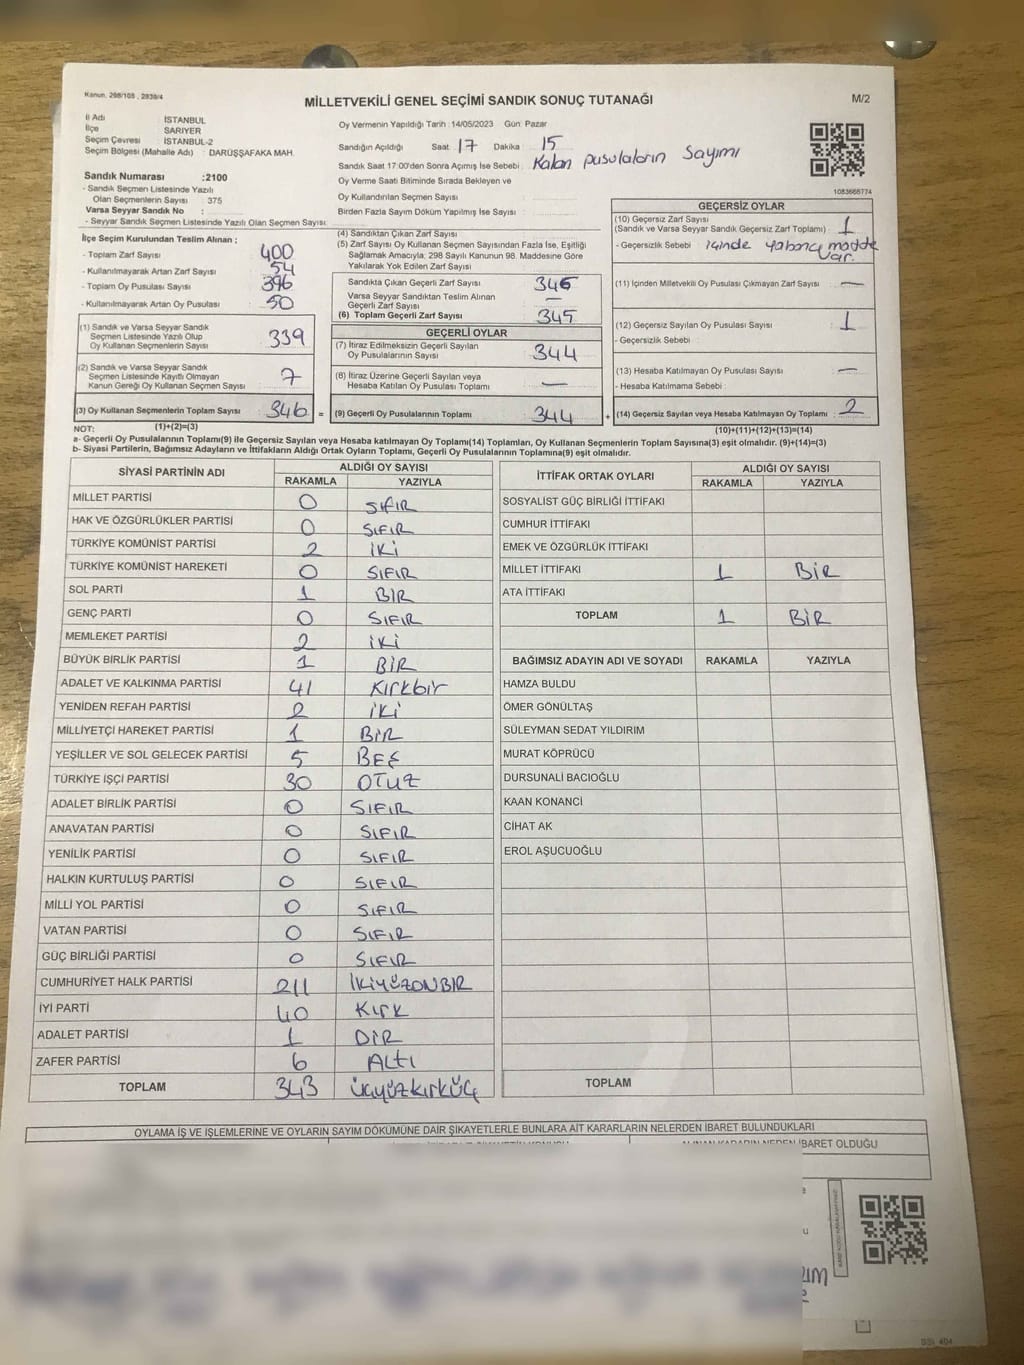 Kanun. 298/105 , 2839/4
MİLLETVEKİLİ GENEL SEÇİMİ SANDIK SONUÇ TUTANAĞI
M/2
İl Adı : İSTANBUL
İlçe : SARIYER
Seçim Çevresi : İSTANBUL-2
Seçim Bölgesi (Mahalle Adı) : DARÜŞŞAFAKA MAH.
Oy Vermenin Yapıldığı Tarih :14/05/2023 Gün: Pazar
Sandığın Açıldığı Saat 17 Dakika : 15
Sandık Saat 17:00'den Sonra Açımış İse Sebebi : Kalan pusulaların Sayımı
Oy Verme Saati Bitiminde Sırada Bekleyen ve
Oy Kullandırılan Seçmen Sayısı :
Birden Fazla Sayım Döküm Yapılmış İse Sayısı :
Sandık Numarası :2100
- Sandık Seçmen Listesinde Yazılı
Olan Seçmenlerin Sayısı : 375
Varsa Seyyar Sandık No :
- Seyyar Sandık Seçmen Listesinde Yazılı Olan Seçmen Sayısı:
1083666774
İlçe Seçim Kurulundan Teslim Alınan ;
- Toplam Zarf Sayısı : 400
- Kullanılmayarak Artan Zarf Sayısı : 54
- Toplam Oy Pusulası Sayısı : 396
- Kullanılmayarak Artan Oy Pusulası : 50
(1) Sandık ve Varsa Seyyar Sandık
Seçmen Listesinde Yazılı Olup
Oy Kullanan Seçmenlerin Sayısı : 339
(2) Sandık ve Varsa Seyyar Sandık
Seçmen Listesinde Kayıtlı Olmayan
Kanun Gereği Oy Kullanan Seçmen Sayısı : 7
(3) Oy Kullanan Seçmenlerin Toplam Sayısı : 346 =
(1)+(2)=(3)
(4) Sandıktan Çıkan Zarf Sayısı :
(5) Zarf Sayısı Oy Kullanan Seçmen Sayısından Fazla İse, Eşitliği
Sağlamak Amacıyla; 298 Sayılı Kanunun 98. Maddesine Göre
Yakılarak Yok Edilen Zarf Sayısı :
Sandıkta Çıkan Geçerli Zarf Sayısı : 345
Varsa Seyyar Sandıktan Teslim Alınan
Geçerli Zarf Sayısı : —
(6) Toplam Geçerli Zarf Sayısı : 345
GEÇERLİ OYLAR
(7) İtiraz Edilmeksizin Geçerli Sayılan
Oy Pusulalarının Sayısı : 344
(8) İtiraz Üzerine Geçerli Sayılan veya
Hesaba Katılan Oy Pusulası Toplamı : —
(9) Geçerli Oy Pusulalarının Toplamı : 344 +
GEÇERSİZ OYLAR
(10) Geçersiz Zarf Sayısı
(Sandık ve Varsa Seyyar Sandık Geçersiz Zarf Toplamı) : 1
- Geçersizlik Sebebi : içinde yabancı madde
var.
(11) İçinden Milletvekili Oy Pusulası Çıkmayan Zarf Sayısı : —
(12) Geçersiz Sayılan Oy Pusulası Sayısı : 1
- Geçersizlik Sebebi :
(13) Hesaba Katılmayan Oy Pusulası Sayısı : —
- Hesaba Katılmama Sebebi :
(14) Geçersiz Sayılan veya Hesaba Katılmayan Oy Toplamı : 2
(10)+(11)+(12)+(13)=(14)
NOT:
a- Geçerli Oy Pusulalarının Toplamı(9) ile Geçersiz Sayılan veya Hesaba katılmayan Oy Toplamı(14) Toplamları, Oy Kullanan Seçmenlerin Toplam Sayısına(3) eşit olmalıdır. (9)+(14)=(3)
b- Siyasi Partilerin, Bağımsız Adayların ve İttifakların Aldığı Ortak Oyların Toplamı, Geçerli Oy Pusulalarının Toplamına(9) eşit olmalıdır.
SİYASİ PARTİNİN ADI ALDIĞI OY SAYISI
RAKAMLA YAZIYLA
MİLLET PARTİSİ 0 SIFIR
HAK VE ÖZGÜRLÜKLER PARTİSİ 0 SIFIR
TÜRKİYE KOMÜNİST PARTİSİ 2 İKİ
TÜRKİYE KOMÜNİST HAREKETİ 0 SIFIR
SOL PARTİ 1 BİR
GENÇ PARTİ 0 SIFIR
MEMLEKET PARTİSİ 2 İKİ
BÜYÜK BİRLİK PARTİSİ 1 BİR
ADALET VE KALKINMA PARTİSİ 41 Kırkbir
YENİDEN REFAH PARTİSİ 2 İKİ
MİLLİYETÇİ HAREKET PARTİSİ 1 BİR
YEŞİLLER VE SOL GELECEK PARTİSİ 5 BEŞ
TÜRKİYE İŞÇİ PARTİSİ 30 OTUZ
ADALET BİRLİK PARTİSİ 0 SIFIR
ANAVATAN PARTİSİ 0 SIFIR
YENİLİK PARTİSİ 0 SIFIR
HALKIN KURTULUŞ PARTİSİ 0 SIFIR
MİLLİ YOL PARTİSİ 0 SIFIR
VATAN PARTİSİ 0 SIFIR
GÜÇ BİRLİĞİ PARTİSİ 0 SIFIR
CUMHURİYET HALK PARTİSİ 211 İKİYÜZONBİR
İYİ PARTİ 40 KIRK
ADALET PARTİSİ 1 BİR
ZAFER PARTİSİ 6 ALTI
TOPLAM 343 üçyüzkırküç
İTTİFAK ORTAK OYLARI ALDIĞI OY SAYISI
RAKAMLA YAZIYLA
SOSYALİST GÜÇ BİRLİĞİ İTTİFAKI
CUMHUR İTTİFAKI
EMEK VE ÖZGÜRLÜK İTTİFAKI
MİLLET İTTİFAKI 1 BİR
ATA İTTİFAKI
TOPLAM 1 BİR
BAĞIMSIZ ADAYIN ADI VE SOYADI RAKAMLA YAZIYLA
HAMZA BULDU
ÖMER GÖNÜLTAŞ
SÜLEYMAN SEDAT YILDIRIM
MURAT KÖPRÜCÜ
DURSUNALİ BACIOĞLU
KAAN KONANCİ
CİHAT AK
EROL AŞUCUOĞLU
TOPLAM
OYLAMA İŞ VE İŞLEMLERİNE VE OYLARIN SAYIM DÖKÜMÜNE DAİR ŞİKAYETLERLE BUNLARA AİT KARARLARIN NELERDEN İBARET BULUNDUKLARI
ALINAN KARARIN NEDEN İBARET OLDUĞU